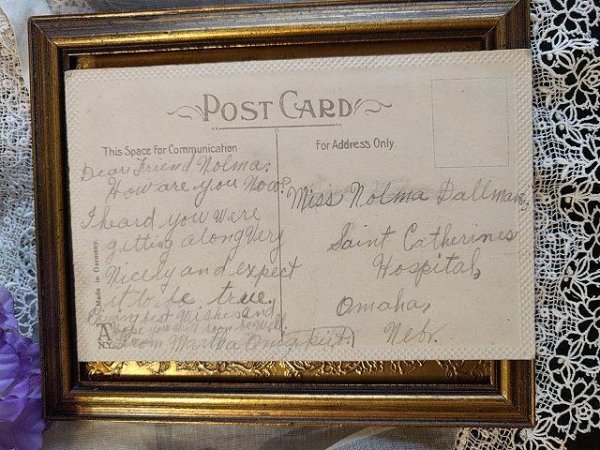 POST CARD
This Space for Communication
For Address Only.
Dear Friend Nolma:
How are you now?
I heard you were
getting along very
Nicely and expect
it to be true.
best Wishes and
hope
From Martha
Miss Nolma Dallman,
Saint Catherines
Hospital,
Omaha,
Nebr.
Made in Germany.